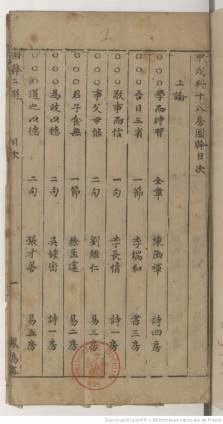 甲戌科十八房國幹目次
上論
學而時習 全章 陳 詩四房
吾日三省 一節 李瑞和 書三房
敬事而信 一句 李長倩 詩一房
事父母能 二句 劉 仁 易三房
君子食無 一節 徐 易二房
為政以德 二句 吳鍾巒 詩一房
道之以德 二句 張才 易五房
目次 一
Source gallica.bnf.fr / Bibliothèque nationale de France